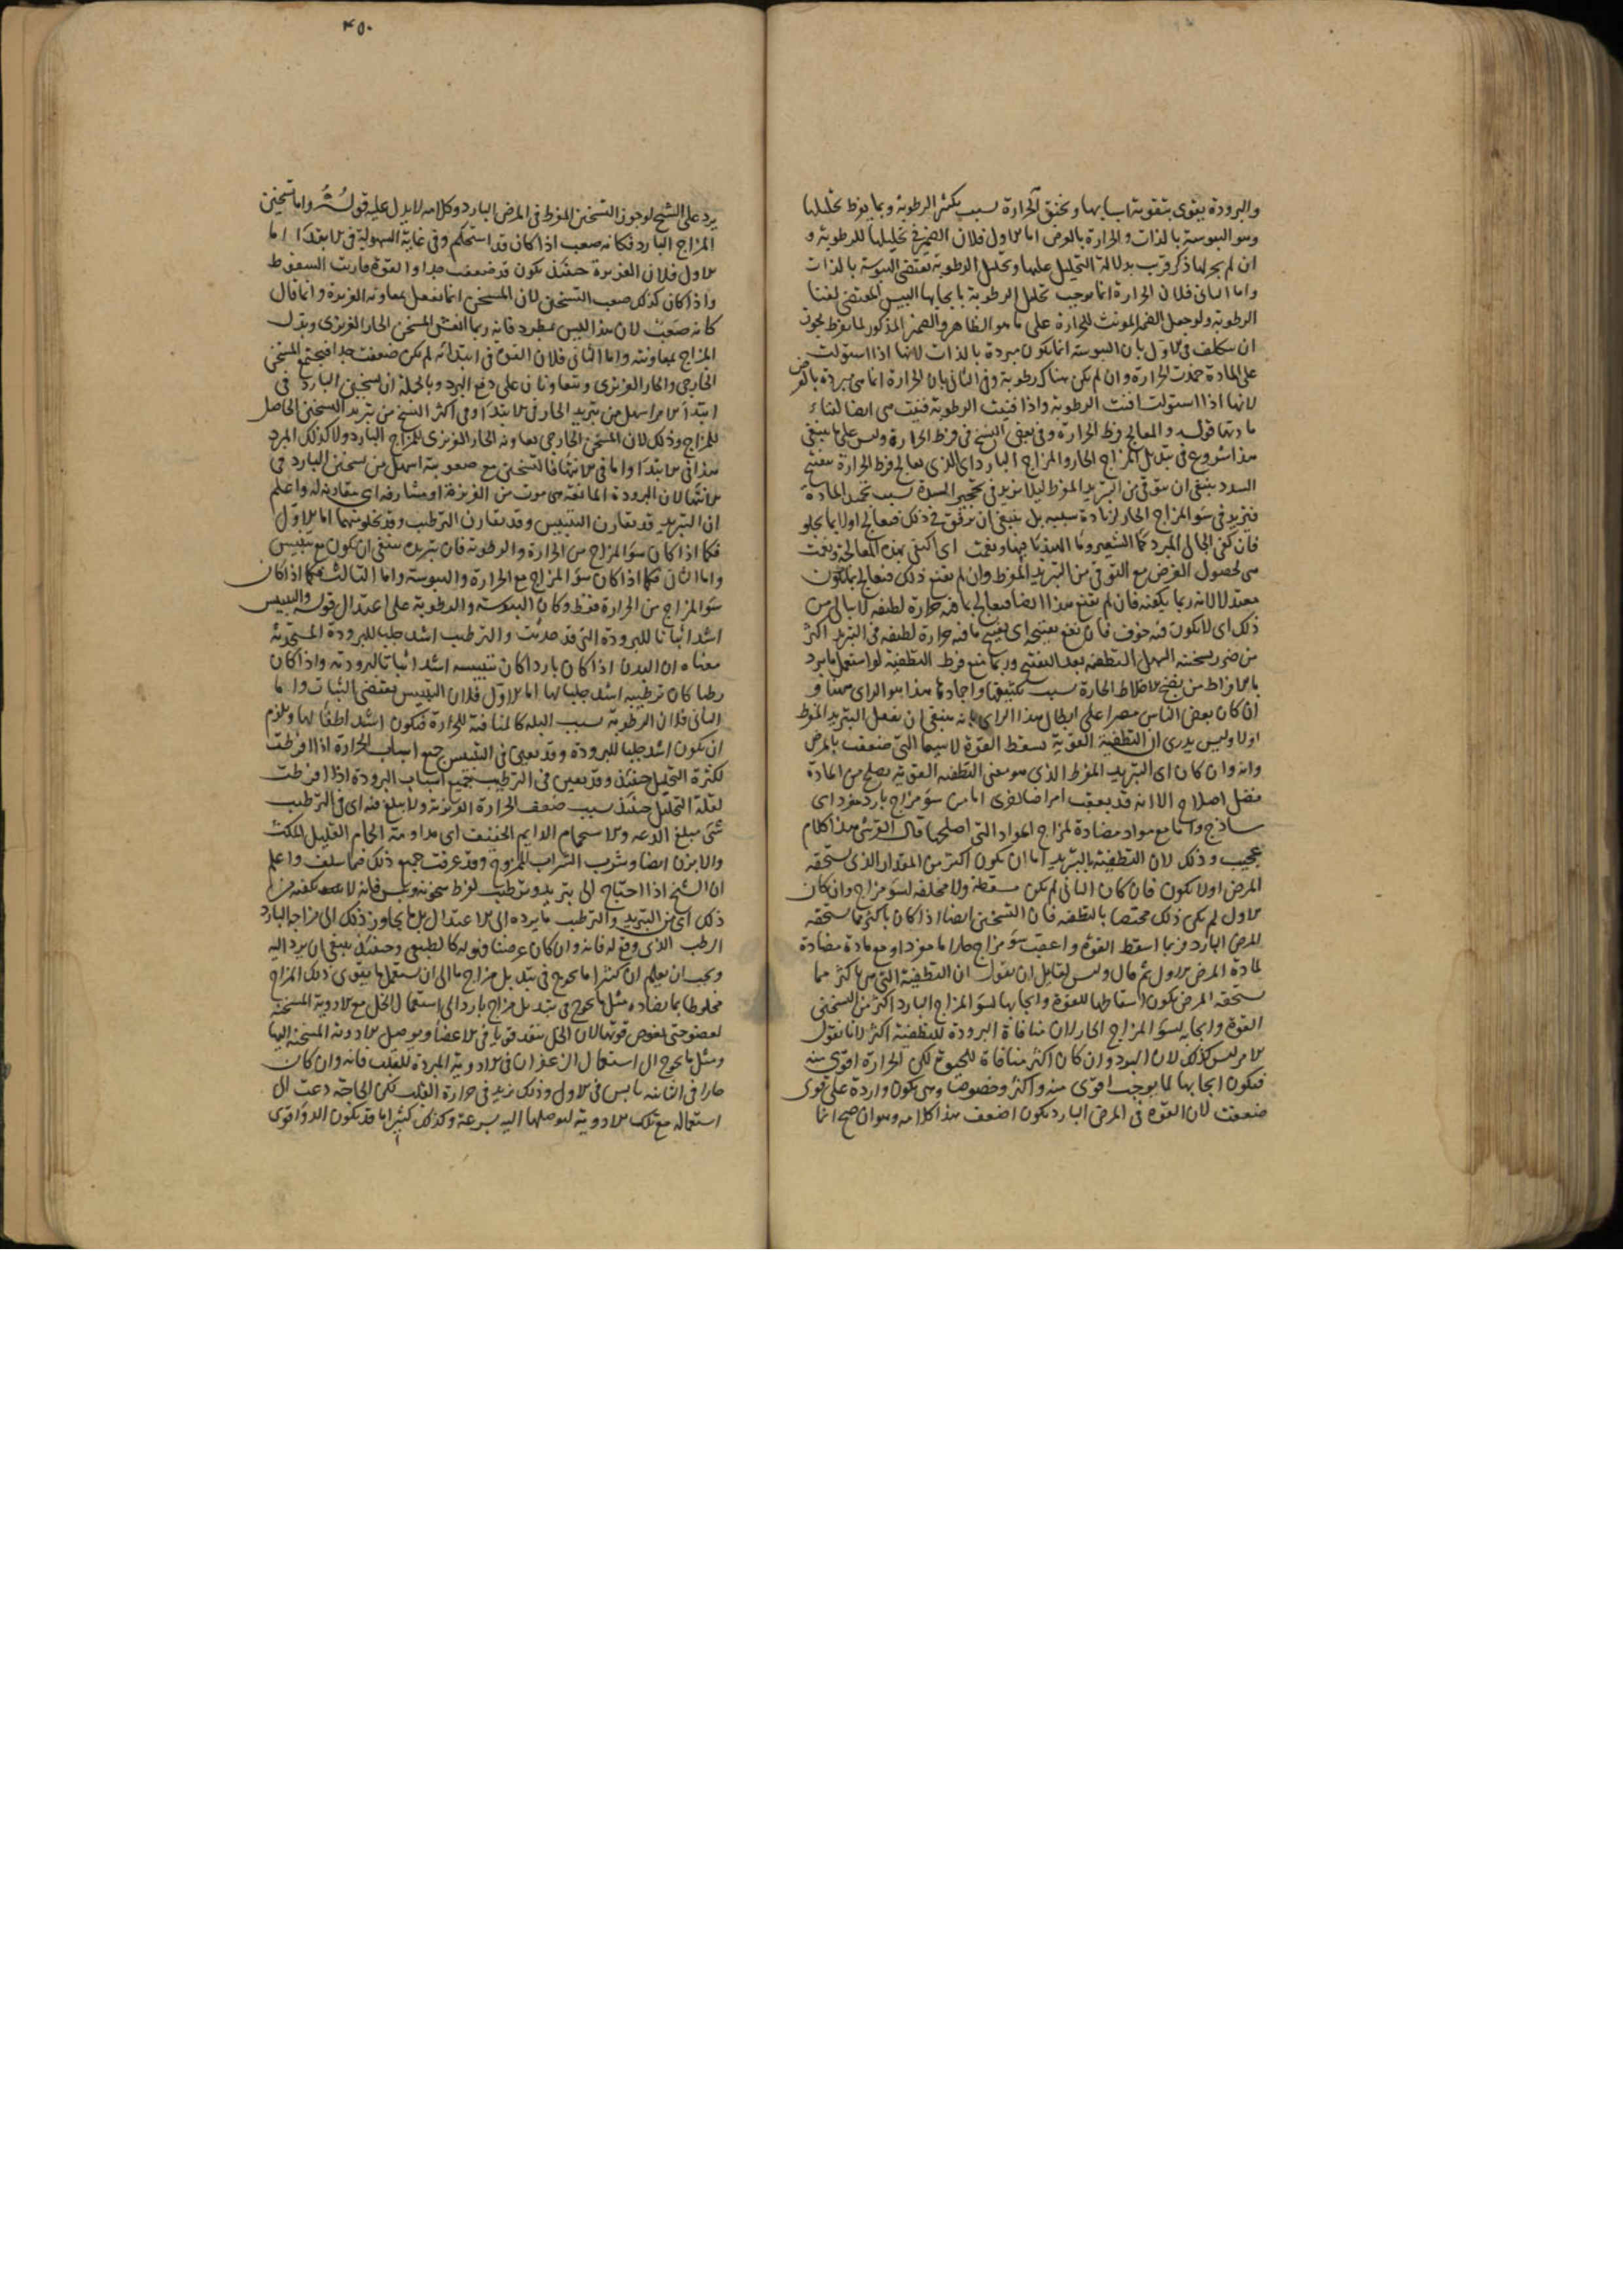 والبرودة يقوى بتقوية اسبابها ويخنق الحرارة بسبب تكثر الرطوبة وبما يفرط تحليلها
وهو اليبوسة بالذات والحرارة بالعرض اما الاول فلان الضمير في تحليلها للرطوبة و
ان لم يجر لها ذكر قرب بدلالة التحليل عليها وتحليل الرطوبة تقتضى اليبوسة بالذات
واما الثانى فلان الحرارة انما يوجب تحليل الرطوبة بايجابها اليبس المقتضى لفنا
الرطوبة ولو جعل الضمير المونث للحرارة على ما هو الظاهر والضمير المذكور لما يفرط لجوز
ان يتكلف فى الاول بان اليبوسة انما يكون مبردة بالذات لانها اذا استولت
على المادة خمدت الحرارة وان لم يكن هناك رطوبة وفى الثانى بان الحرارة انما هى مبردة بالعرض
لانها اذا استولت افنت الرطوبة واذا فنيت الرطوبة فنيت هى ايضا لفناء
مادتها قوله والمعالج فرط الحرارة وفى بعض النسخ فى فرط الحرارة وليس على ما ينبغى
هذا شروع فى تبديل المزاج الحار والمزاج البارد اى الذى يعالج فرط الحرارة بتفتيح
السدد ينبغى ان يتوقى من التبريد المفرط ليلا يزيد فى تحجير السدة بسبب تجميد المادة
فيزيد فى سو المزاج الحار لزيادة سببه بل ينبغى ان يرفق فى ذلك فيعالج اولا بما يجلو
فان كفى الجالى المبرد كما الشعير وما الهندبا فبها ونعمت اى اكتفى بهذه المعالجة ونعمت
هى لحصول الغرض مع التوقى من التبريد المفرط وان لم يقنع ذلك فيعالج بما يكون
معتدلا لانه ربما يكفيه فان لم يقنع هذا ايضا فيعالج بما فيه حرارة لطيفة لا يبالى من
ذلك اى لا يكون فيه خوف فان نفع تفتيحه اى تفتيح ما فيه حرارة لطيفة فى التبريد اكثر
من ضرر تسخينه السهل التطفية بعد التفتيح وربما منع فرط التطفية لو استعمل ما يبرد
بافراط من نضج الاخلاط الحارة بسبب تكثيفها واجمادها هذا هو الراى ههنا و
ان كان بعض الناس مصرا على ابطال هذا الراى بانه ينبغى ان يفعل التبريد المفرط
اولا وليس يدرى ان التطفية القوية يسقط القوة لا سيما التى ضعفت بالمرض
وانه وان كان اى التبريد المفرط الذى هو معنى التطفية القوية يصلح من المادة
فضل اصلاح الا انه قد يعقب امراضا اخرى اما من سو مزاج بارد مفرد اى
ساذج واما مع مواد مضادة لمزاج المواد التى اصلحها قال القرشى هذا كلام
عجيب وذلك لان التطفية بالتبريد اما ان يكون اكثر من المقدار الذى يستحقه
المرض اولا يكون فان كان الثانى لم يكن مسقطة ولا مخلفة لسو مزاج وان كان
الاول لم يكن ذلك مختصا بالتطفية فان التسخين ايضا اذا كان باكثر مما يستحقه
المرض البارد فربما اسقط القوة واعقب سو مزاج حار اما مفرد او مع مادة مضادة
لمادة المرض الاول ثم قال وليس لقايل ان يقول ان التطفية التى هى باكثر مما
يستحقه المرض يكون اسقاطها للقوة وايجابها لسو المزاج البارد اكثر من التسخين
القوة وايجابه لسو المزاج الحار لان منافاة البرودة للتطفية اكثر لانا نقول
الامر ليس كذلك لان البرد وان كان اكثر منافاة للحيوة لكن الحرارة اقوى منه
فيكون ايجابها لما يوجب اقوى منه واكثر وخصوصا وهى يكون واردة على قوى
ضعفت لان القوة فى المرض البارد يكون اضعف هذا كلامه وهو ان صح انما
٤٥٠
يرد على الشيخ لو جوز التسخين المفرط فى المرض البارد وكلامه لا يدل عليه قوله واما تسخين
المزاج البارد فكانه صعب اذا كان قد استحكم وفى غاية السهولة فى الابتداء اما
الاول فلان الغريزة حينئذ يكون قد ضعفت جدا والقوة قاربت السقوط
واذا كان كذلك صعب التسخين لان المسخن انما يفعل بمعاونة الغريزة وانما قال
كانه صعب لان هذا ليس بمطرد فانه ربما انعش المسخن الحار الغريزى وبدل
المزاج بمعاونته واما الثانى فلان القوة فى ابتدائه لم يكن ضعفت جدا فيجتمع المسخن
الخارجى والحار الغريزى ويتعاونان على دفع البرد وبالجملة ان تسخين البارد فى
ابتداء الامر اسهل من تبريد الحار فى الابتداء وفى اكثر النسخ من تبريد التسخين الحاصل
للمزاج وذلك لان المسخن الخارجى يعاونه الحار الغريزى للمزاج البارد ولا كذلك المبرد
هذا فى الابتداء واما فى الانتها فالتسخين مع صعوبته اسهل من تسخين البارد فى
الانتها لان البرودة البالغة هى موت من الغريزة او مشارفة اى مقاربة له واعلم
ان التبريد قد يقارن التيبيس وقد يقارن الترطيب وقد يخلو منهما اما الاول
فكما اذا كان سو المزاج من الحرارة والرطوبة فان تبريده ينبغى ان يكون مع تيبيس
واما الثانى فكما اذا كان سو المزاج مع الحرارة واليبوسة واما الثالث فكما اذا كان
سو المزاج من الحرارة فقط وكان اليبوسة والرطوبة على اعتدال قوله والتيبيس
اشد اثباتا للبرودة التى قد حدثت والترطيب اشد جلبا للبرودة المستجدثة
معناه ان البدن اذا كان باردا كان تيبيسه اشد اثباتا لبرودته واذا كان
رطبا كان ترطيبه اشد جلبا لها اما الاول فلان التيبيس يقتضى الثبات واما
الثانى فلان الرطوبة بسبب البلة كالمنافية للحرارة فيكون اشد اطفاء لها ويلزم
ان يكون اشد جلبا للبرودة وقد يعين فى التيبيس جميع اسباب الحرارة اذا افرطت
لكثرة التحليل حينئذ وقد يعين فى الترطيب جميع اسباب البرودة اذا افرطت
لقلة التحليل حينئذ بسبب ضعف الحرارة الغريزية ولا يبلغ منه اى فى الترطيب
شى مبلغ الدعة والاستحمام الدايم الخفيف اى مداومة الحمام القليل المكث
والابزن ايضا وشرب الشراب الممزوج وقد عرفت جميع ذلك فيما سلف واعلم
ان الشيخ اذا احتاج الى تبريد وترطيب لفرط سخونة ويبس فانه لا يكفيه من
ذلك اى من التبريد والترطيب ما يرده الى الاعتدال بل ما يجاوز ذلك الى مزاجه البارد
الرطب الذى وقع له فانه وان كان عرضيا فهو له كالطبيعى وحينئذ ينبغى ان يرد اليه
ويجب ان يعلم ان كثيرا ما يحوج فى تبديل مزاج ما الى ان يستعمل ما يقوى ذلك المزاج
مخلوطا بما يضاده مثل ما يحوج فى تبديل مزاج بارد الى استعمال الخل مع الادوية المسخنة
لعضو حتى يغوص قوتها لان الخل ينفذ قويا فى الاعضاء ويوصل الادوية المسخنة اليها
ومثل ما يحوج الى استعمال الزعفران فى الادوية المبردة للقلب فانه وان كان
حارا فى الثانية يابس فى الاول وذلك يزيد فى حرارة القلب لكن الحاجة دعت الى
استعماله مع تلك الادوية ليوصلها اليه بسرعة وكذلك كثيرا ما قد يكون الدوا قوى